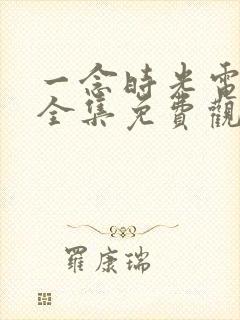 一念時光電
全集免費觀
羅康瑞